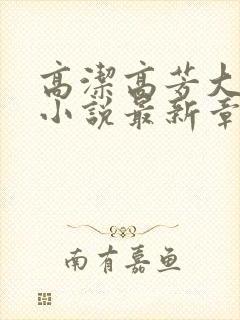 高潔高芳大
小說最新章
南有嘉鱼